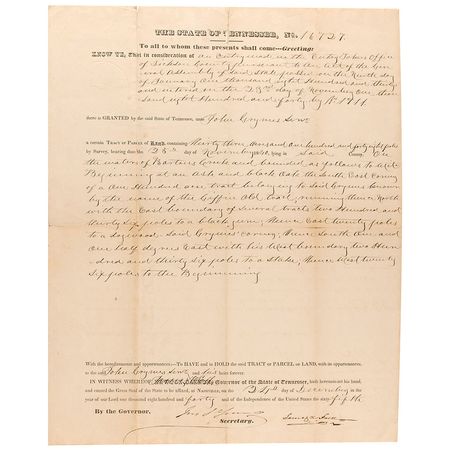 THE STATE OF TENNESSEE, No. 16727.
To all to whom these presents shall come—Greeting:
KNOW YE, That in consideration of an Entry made in the Entry Takers Office
of Dickson County pursuant to the Act of the Gen
eral Assembly of said State passed on the Ninth day
of January one thousand eight Hundred and thirty
and entered on the 23rd day of November One thou
sand eight Hundred and forty by No 1911
there is GRANTED by the said State of Tennessee, unto John Grymes Senr
a certain TRACT or PARCEL of LAND, containing Thirty three and one hundred and forty eight poles
by Survey, bearing date the day of November lying in said County. On
the waters of Bartons Creek and bounded as follows to wit
Beginning at an Ash and black Oak the South East Corner
of a One Hundred acre tract belonging to said Grymes known
by the name of the tract, running thence North
with the East boundary of several tracts two Hundred and
thirty six poles to a black gum; thence East twenty poles
to a Dogwood said Grymes' corner; thence South One and
One half degrees East with his West boundary two Hun
-dred and thirty six poles to a Stake; thence West twenty
six poles to the Beginning
With the hereditaments and appurtenances.—To HAVE and to HOLD the said TRACT or PARCEL OF LAND, with its appurtenances,
to the said John Grymes Senr and his heirs forever.
IN WITNESS WHEREOF, Governor of the State of Tennessee, hath hereunto set his hand,
and caused the Great Seal of the State to be affixed, at NASHVILLE, on the day of December in the
year of our Lord one thousand eight hundred and forty and of the Independence of the United States the sixty-fifth
By the Governor. James K. Polk
Secretary.